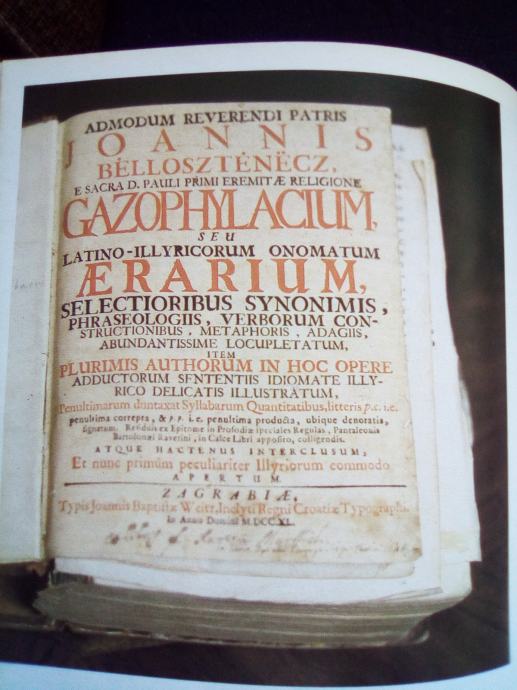 ADMODUM REVERENDI PATRIS
JOANNIS
BËLLOSZTËNËCZ,
E SACRA D. PAULI PRIMI EREMITÆ RELIGIONE
GAZOPHYLACIUM,
SEU
LATINO-ILLYRICORUM ONOMATUM
ÆRARIUM,
SELECTIORIBUS SYNONIMIS,
PHRASEOLOGIIS, VERBORUM CON-
STRUCTIONIBUS, METAPHORIS, ADAGIIS,
ABUNDANTISSIME LOCUPLETATUM,
ITEM
PLURIMIS AUTHORUM IN HOC OPERE
ADDUCTORUM SENTENTIIS IDIOMATE ILLY-
RICO DELICATIS ILLUSTRATUM,
Penultimarum duntaxat Syllabarum Quantitatibus, litteris p.c. i.e.
penultima correpta, & p.p. i.e. penultima producta, ubique denotatis,
signatum. Reliduis ex Epitome in Prosodiæ speciales Regulas, Pantaleonis
Bartolonæi Raverini, in Calce Libri apposito, colligendis.
ATQUE HACTENUS INTERCLUSUM,
Et nunc primùm peculiariter Illyriorum commodo
APERTUM.
ZAGRABIÆ,
Typis Joannis Baptistæ Weitz, Inclyti Regni Croatiæ Typographi,
In Anno Domini M.DCC.XL.